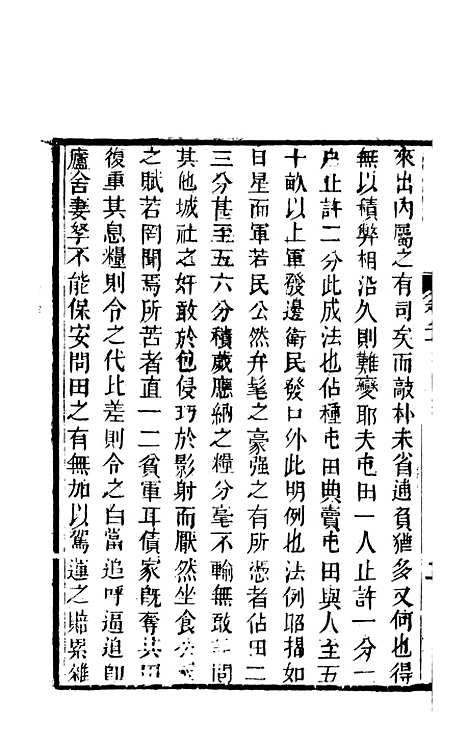 來出內屬之有司矣而敲朴未省逋負猶多又何也得
無以積弊相沿久則難變耶夫屯田一人止許一分一
戶止許二分此成法也佔種屯田典賣屯田與人至五
十畝以上軍發邊衛民發口外此明例也法例昭揭如
日星而軍若民公然弁髦之豪强之有所憑者佔田二
三分甚至五六分積歲應納之糧分毫不輸無敢問
其他城社之奸敢於包侵巧於影射而厭然坐食
之賦若罔聞焉所苦者直一二貧軍耳債家旣奪其田
復重其息糧則令之代比差則令之白當追呼逼迫卽
廬舍妻孥不能保安問田之有無加以駕運之賠累雜